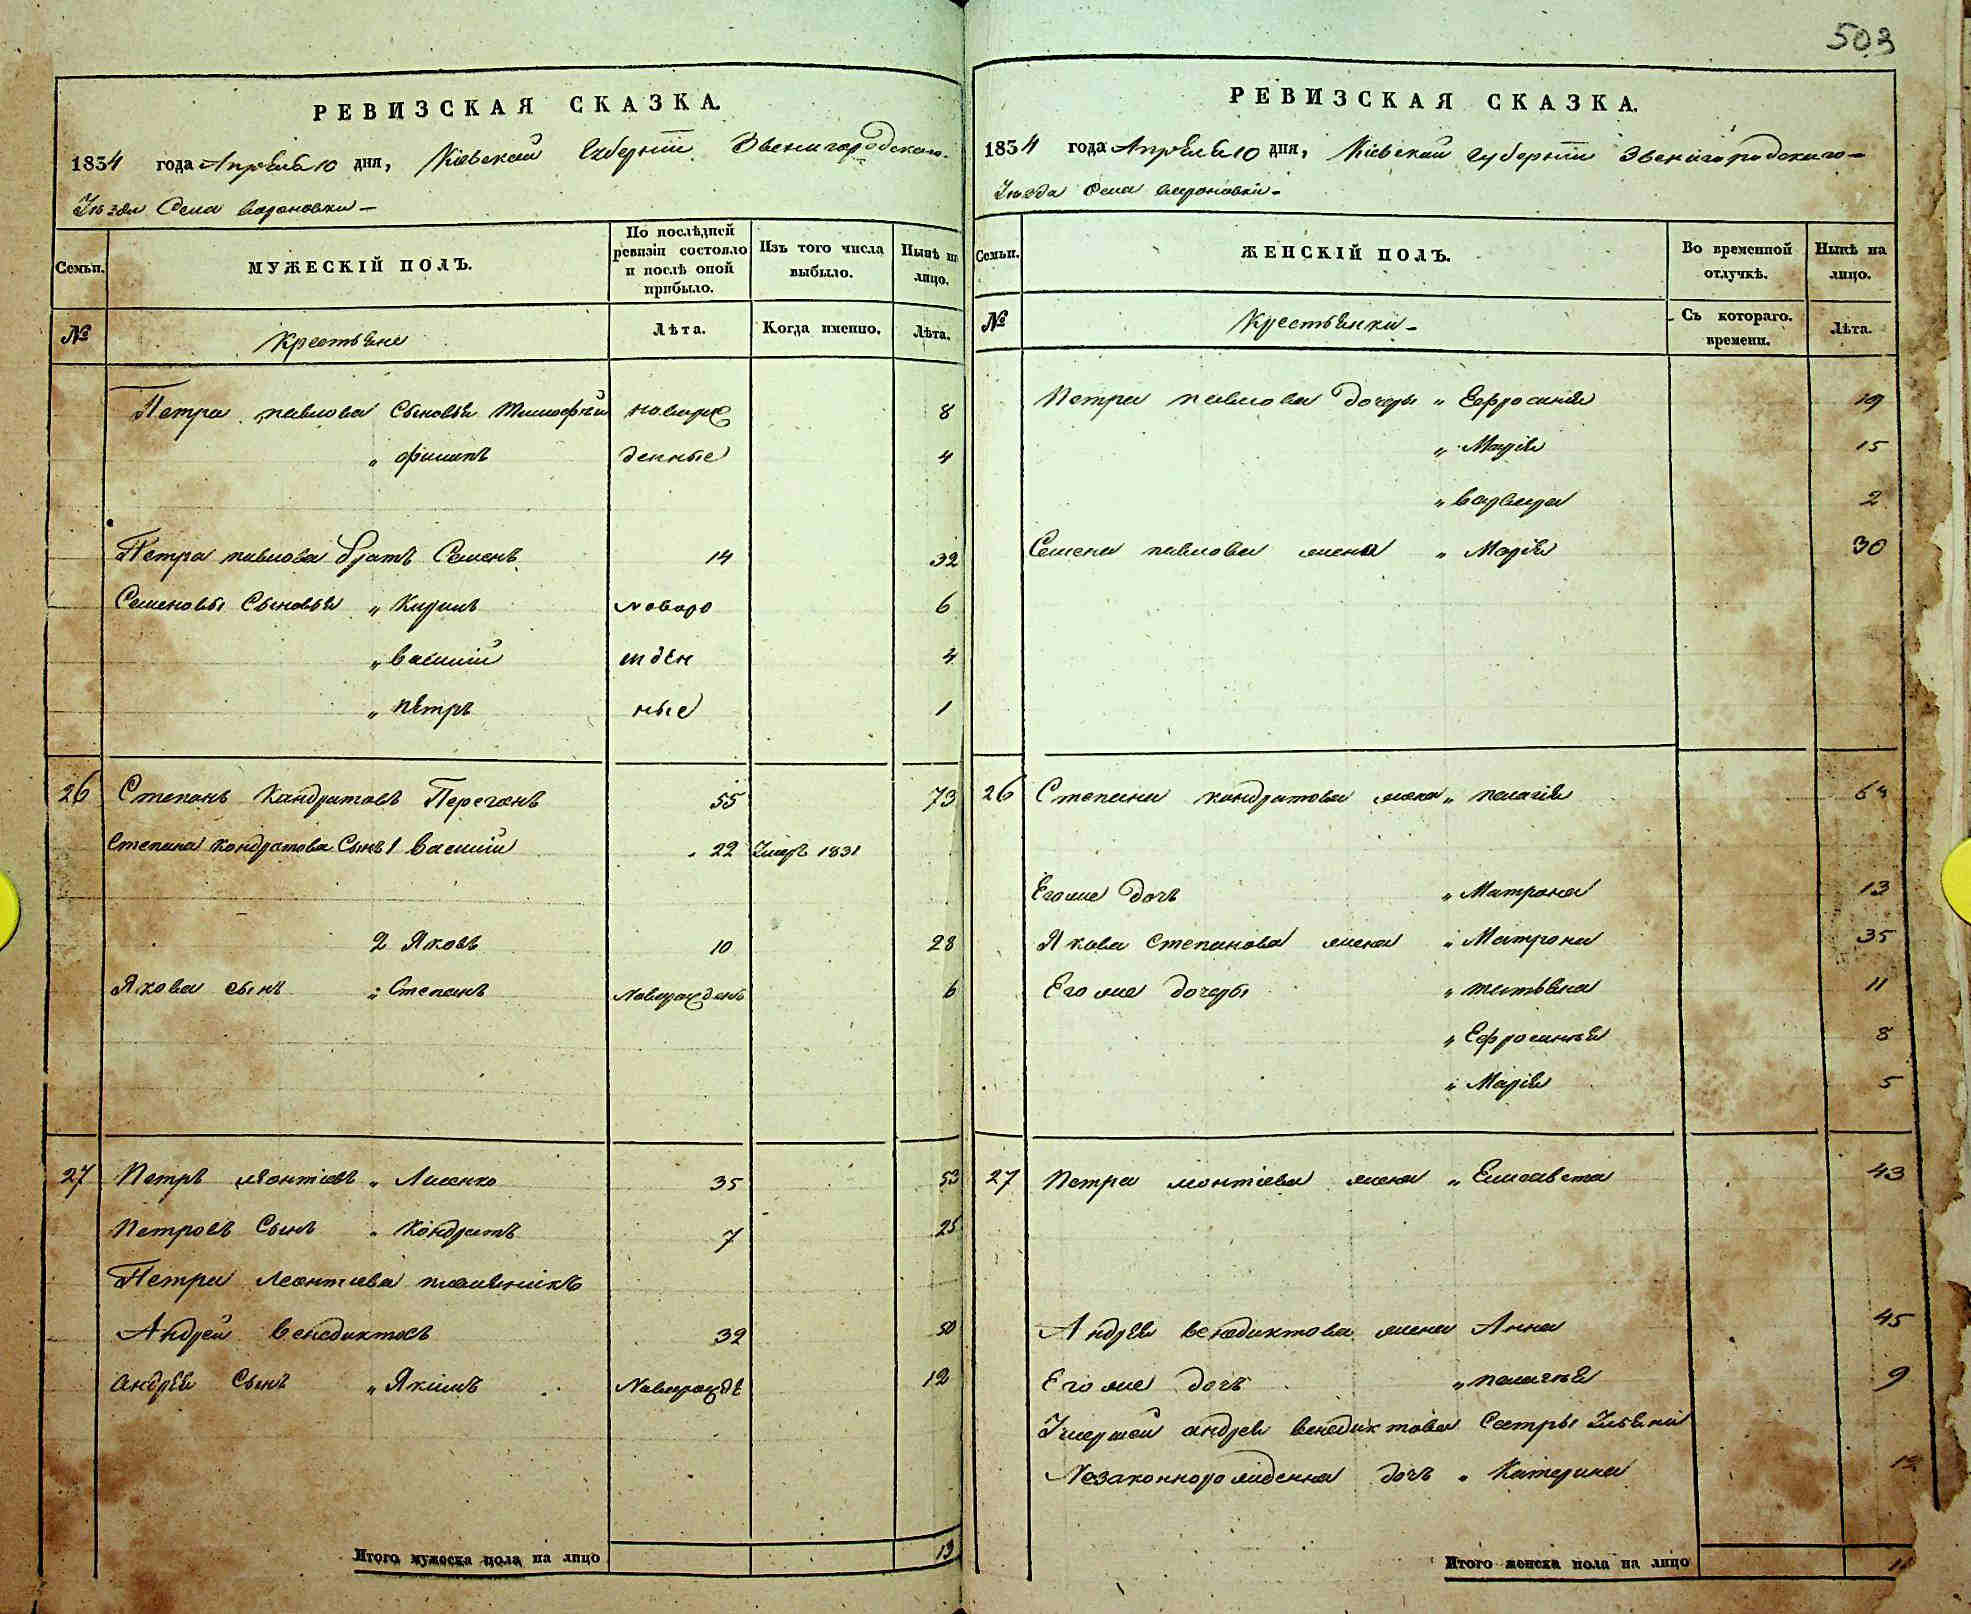 503
РЕВИЗСКАЯ СКАЗКА.
1834 года Апреля 10 дня, Кіевской Губерніи Звенигородскаго
Уезда Села Вороновки
Семьи.
МУЖЕСКІЙ ПОЛЪ.
По послѣдней ревизіи состояло и послѣ оной прибыло.
Изъ того числа выбыло.
Нынѣ на лицо.
№
Крестьяне
Лѣта.
Когда именно.
Лѣта.
Петра павлова Сыновья Тимофей новорож 8
„ филипъ денные 4
Петра павлова братъ Семенъ 14 32
Семеновы Сыновья „ Кирилъ новоро 6
„ василій жден 4
„ петръ ные 1
26 Степанъ Кандратовъ Переганъ 55 73
Степана Кондратова Сынъ 1 василій 22 Умеръ 1831
2 Яковъ 10 28
Якова сынъ „ Степанъ Новорожденъ 6
27 Петръ леонтіевъ „ Лисенко 35 53
Петровъ Сынъ „ Кондратъ 7 25
Петра Леонтиева племянникъ
Андрей венедиктовъ 32 50
андрея Сынъ „ Якимъ Новорожде 12
Итого мужеска пола на лицо 13
РЕВИЗСКАЯ СКАЗКА.
1834 года Апреля 10 дня, Кіевской Губерніи Звенигородскаго
Уезда Села вороновки
Семьи.
ЖЕНСКІЙ ПОЛЪ.
Во временной отлучкѣ.
Нынѣ на лицо.
№
Крестьянки
Съ котораго. времени.
Лѣта.
Петра павлова дочери „ Ефросинія 19
„ Марія 15
„ варвара 2
Семена павлова жена „ Марія 30
26 Степана кондратова жена „ пелагія
Егоже дочь „ Матрона 13
Якова степанова жена „ Матрона 35
Его же дочери „ татьяна 11
„ Ефросинья 8
„ Марія 5
27 Петра леонтіева жена „ Елисавета 43
Андрея венедиктова жена Анна 45
Его же дочь „ пелагея 9
Умершей андрея венедиктова Сестры Ульяни
Незаконнорожденна дочь „ Катерина
Итого женска пола на лицо